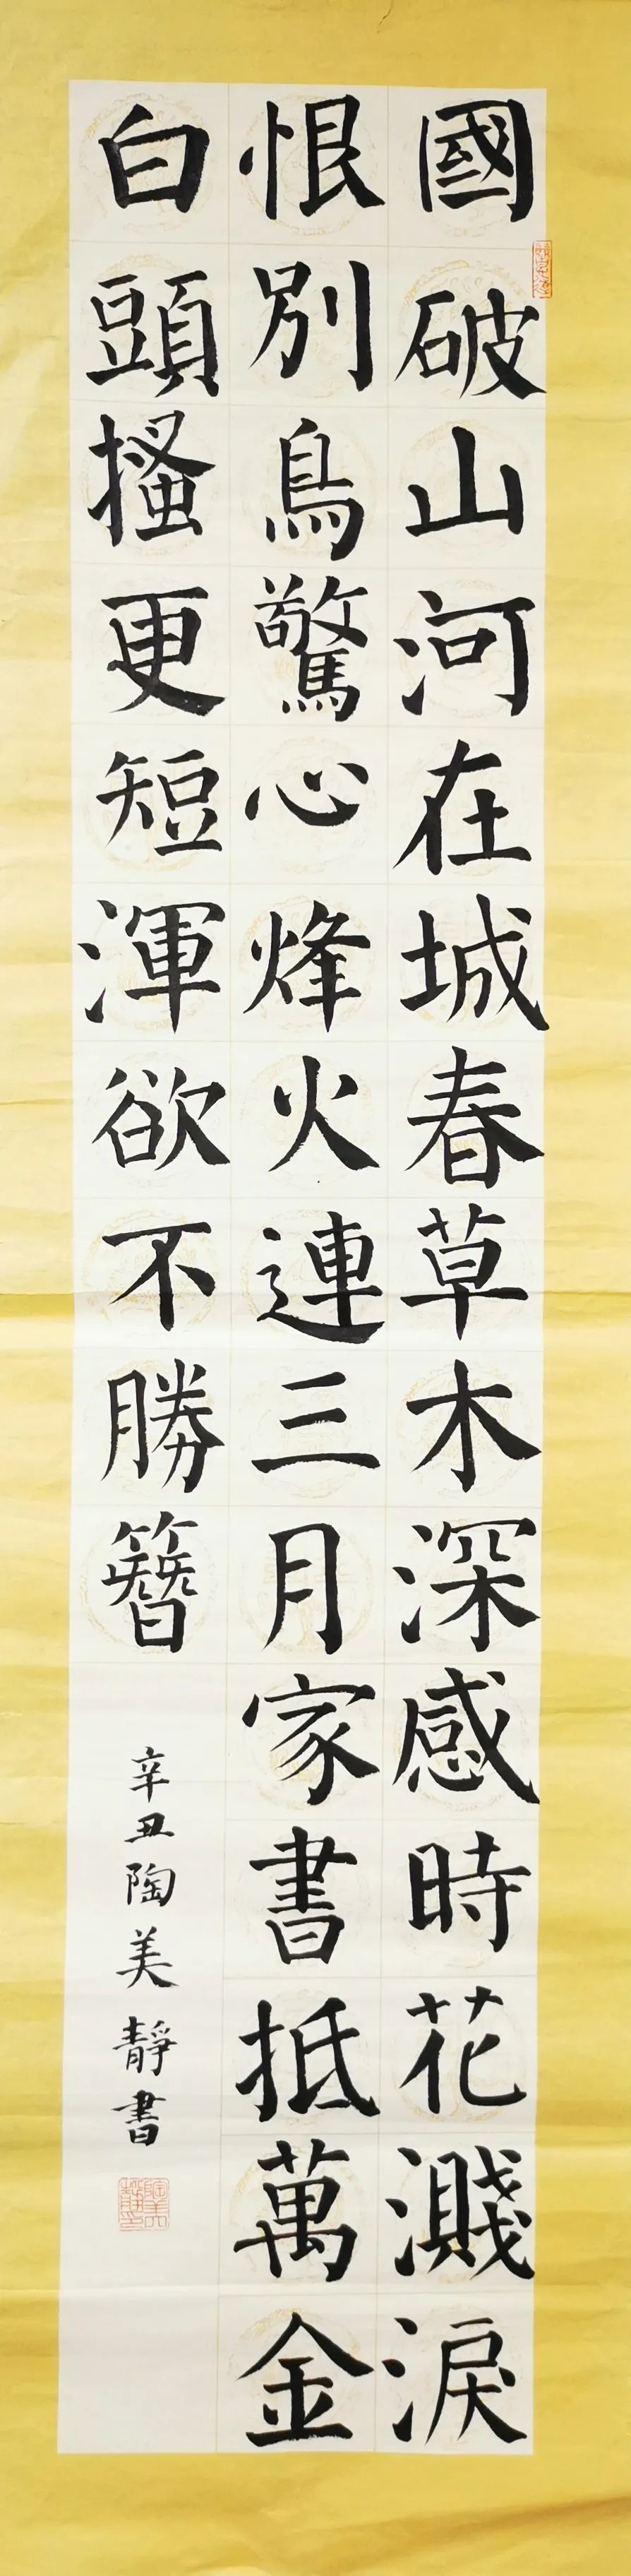 國破山河在城春草木深感時花濺淚
恨別鳥驚心烽火連三月家書抵萬金
白頭搔更短渾欲不勝簪
辛丑陶美靜書